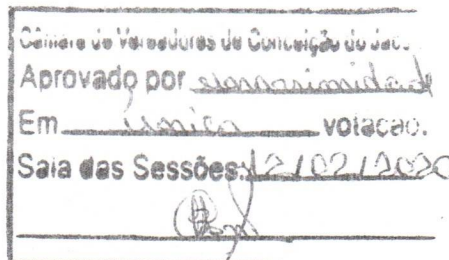 Câmara de Vereadores de Conceição do Jacu
Aprovado por unanimidade
Em única votação.
Sala das Sessões: 12/02/2020